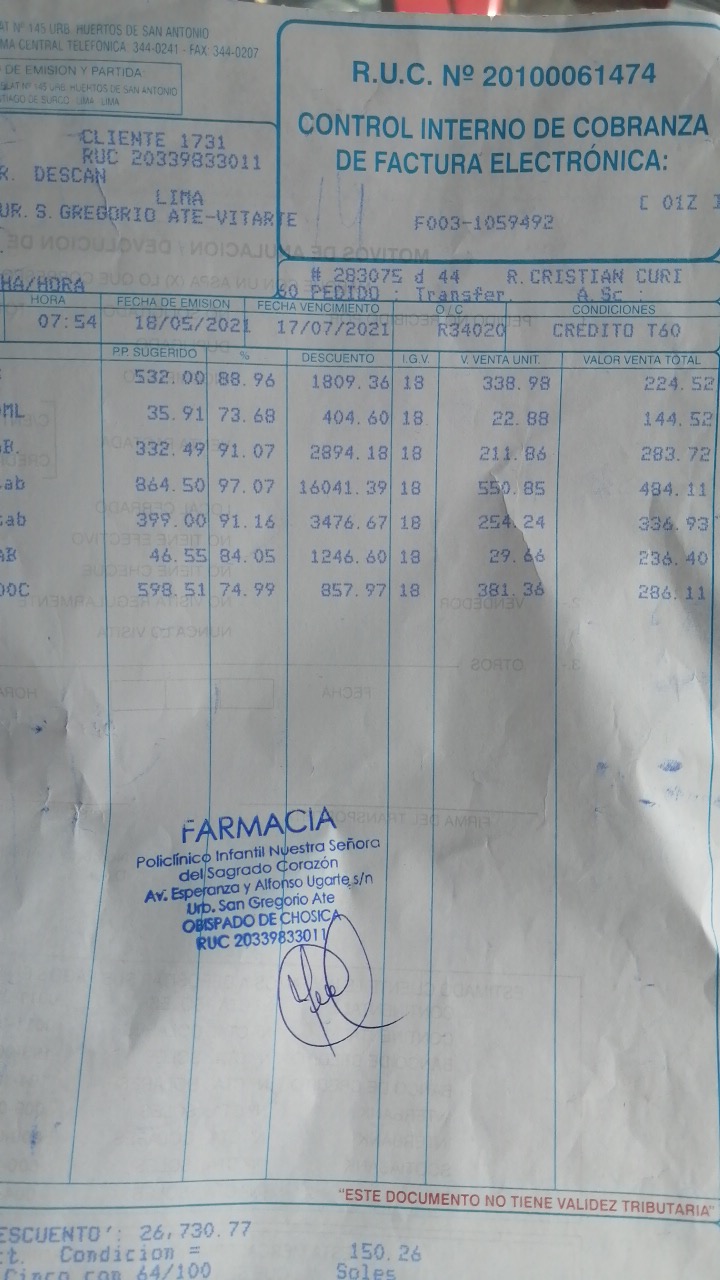 Nº 145 URB. HUERTOS DE SAN ANTONIO
CENTRAL TELEFÓNICA: 344-0241 - FAX: 344-0207
DE EMISION Y PARTIDA:
Nº 145 URB. HUERTOS DE SAN ANTONIO
LIMA - LIMA
R.U.C. Nº 20100061474
CONTROL INTERNO DE COBRANZA
DE FACTURA ELECTRÓNICA:
[ 01Z ]
F003-1059492
CLIENTE 1731
RUC 20339833011
R. DESCAN
LIMA
UR. S. GREGORIO ATE-VITARTE
# 283075 d 44 R.CRISTIAN CURI
HA/HORA 60 PEDIDO : Transfer. A.Sc :
HORA FECHA DE EMISION FECHA VENCIMIENTO O / C CONDICIONES
07:54 18/05/2021 17/07/2021 R34020 CREDITO T60
P.P. SUGERIDO % DESCUENTO I.G.V. V. VENTA UNIT. VALOR VENTA TOTAL
532.00 88.96 1809.36 18 338.98 224.52
ML 35.91 73.68 404.60 18 22.88 144.52
B. 332.49 91.07 2894.18 18 211.86 283.72
ab 864.50 97.07 16041.39 18 550.85 484.11
ab 399.00 91.16 3476.67 18 254.24 336.93
AB 46.55 84.05 1246.60 18 29.66 236.40
00C 598.51 74.99 857.97 18 381.36 286.11
FARMACIA
Policlínico Infantil Nuestra Señora
del Sagrado Corazón
Av. Esperanza y Alfonso Ugarte s/n
Urb. San Gregorio Ate
OBISPADO DE CHOSICA
RUC 20339833011
"ESTE DOCUMENTO NO TIENE VALIDEZ TRIBUTARIA"
ESCUENTO': 26,730.77
ct. Condicion = 150.26
Cinco con 64/100 Soles